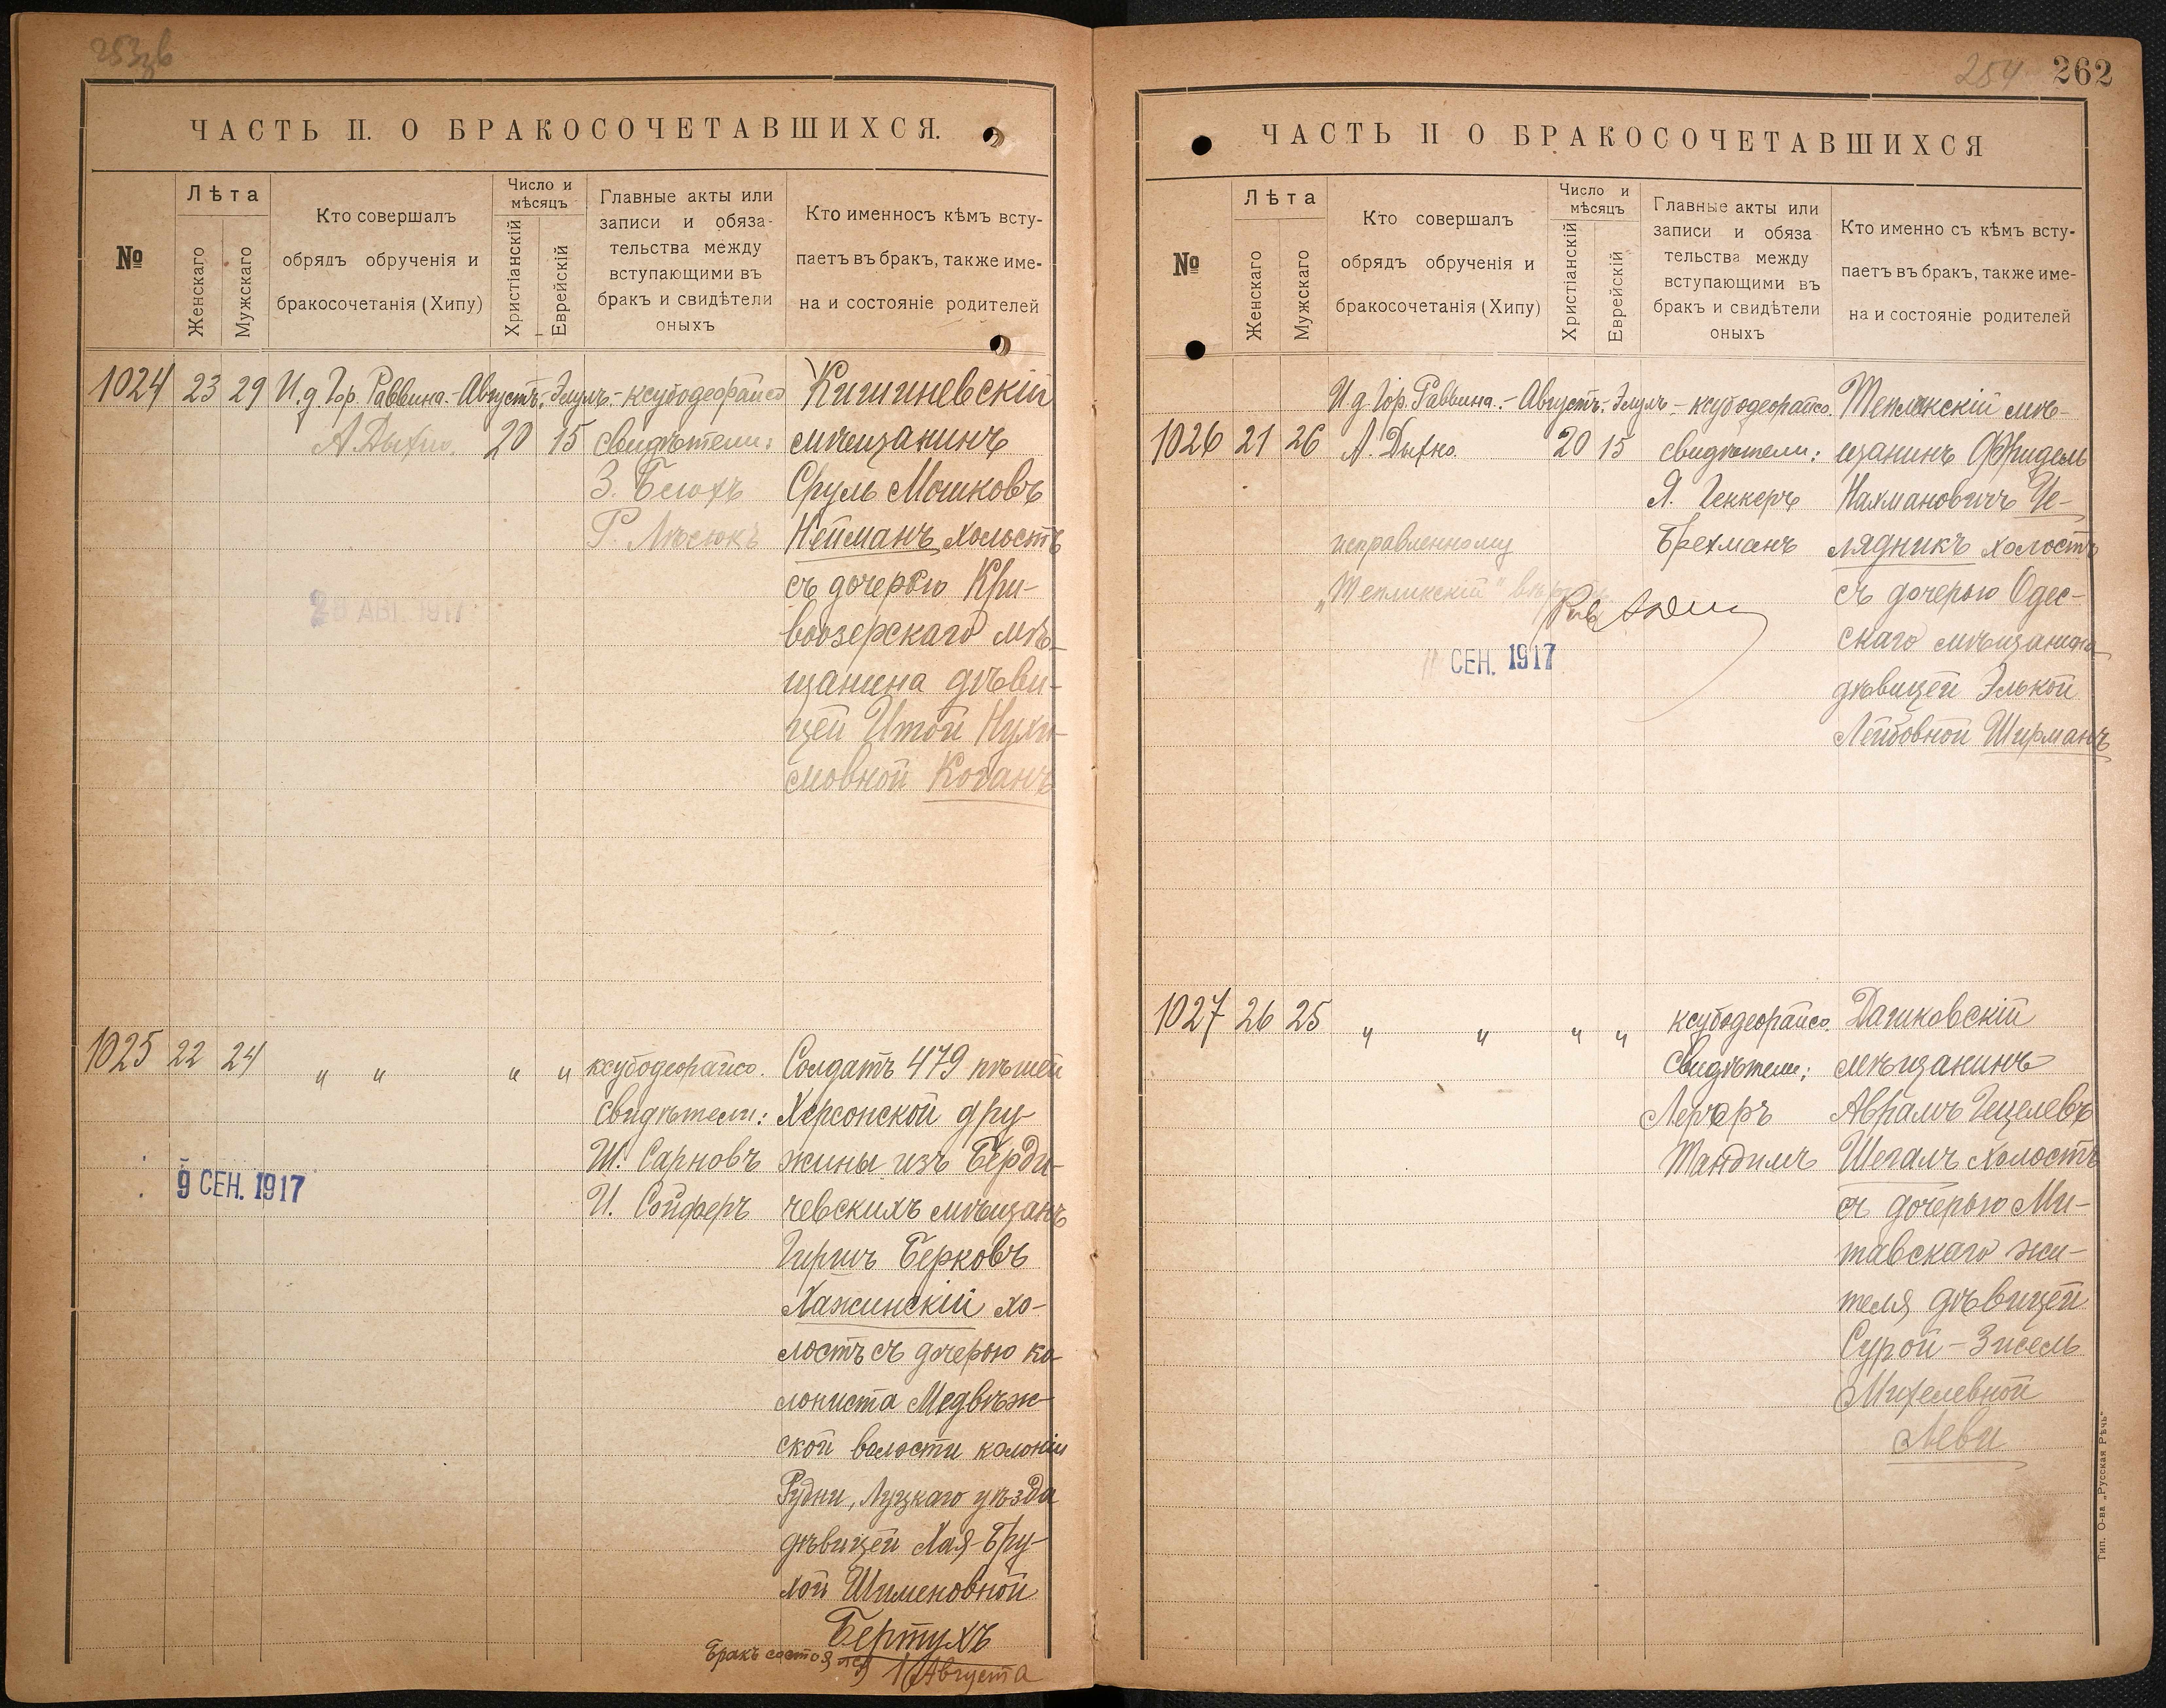 253 об
ЧАСТЬ II. О БРАКОСОЧЕТАВШИХСЯ.
№
Лѣта
Женскаго
Мужскаго
Кто совершалъ
обрядъ обрученія и
бракосочетанія (Хипу)
Число и
мѣсяцъ
Христіанскій
Еврейскій
Главные акты или
записи и обяза-
тельства между
вступающими въ
бракъ и свидѣтели
оныхъ
Кто именносъ кѣмъ всту-
паетъ въ бракъ, также име-
на и состояніе родителей
1024 23 29 И.д. Гор. Раввина.- Августъ. Элулъ.- ксубодеорайсо
А. Дыхно. 20 15 свидѣтели:
З. Бе
Р.
28 АВГ. 1917
Кишиневскій
мѣщанинъ
Сруль Мошковъ
Нейманъ, холостъ
съ дочерью Кри-
воозерскаго мѣ-
щанина дѣви-
цей Итой Нухи-
мовной Коганъ
1025 22 24 " " " " ксубодеорайсо.
свидѣтели:
Ш. Сарновъ
И. Сойферъ
9 СЕН. 1917
Солдатъ 479 пѣшей
Херсонской дру-
жины изъ Берди-
чевскихъ мѣщанъ
Гиршъ Берковъ
Хажинскій хо-
лостъ съ дочерью ко
лониста Медвѣж-
ской волости колоніи
Рудни, Луцкаго уѣзда
дѣвицей Хая-Бру-
хой Шименовной
Бертухъ
Бракъ состоялся 16 Августа
254 262
ЧАСТЬ II О БРАКОСОЧЕТАВШИХСЯ
№
Лѣта
Женскаго
Мужскаго
Кто совершалъ
обрядъ обрученія и
бракосочетанія (Хипу)
Число и
мѣсяцъ
Христіанскій
Еврейскій
Главные акты или
записи и обяза
тельства между
вступающими въ
бракъ и свидѣтели
оныхъ
Кто именно съ кѣмъ всту-
паетъ въ бракъ, также име-
на и состояніе родителей
И.д. Гор. Раввина.- Августъ. Элулъ - ксубодеорайсо.
1026 21 26 А. Дыхно. 20 15 свидѣтели:
Я. Геккеръ
Брехманъ
исправленному
„Тепликскій"
11 СЕН. 1917
Тепликскій мѣ-
щанинъ Фридель
Нахмановичъ Че-
лядникъ холостъ
съ дочерью Одес-
скаго мѣщанина
дѣвицей Элькой
Лейбовной Ширманъ
1027 26 25 " " " " ксубодеорайсо.
Свидѣтели:
Лернеръ
Мандимъ
Дашковскій
мѣщанинъ
Аврамъ Гецелевъ
Шегалъ холостъ
съ дочерью Ми-
тавскаго жи-
теля дѣвицей
Сурой-Зисель
Михелевной
Леви
Тип. О-ва „Русская Рѣчь"